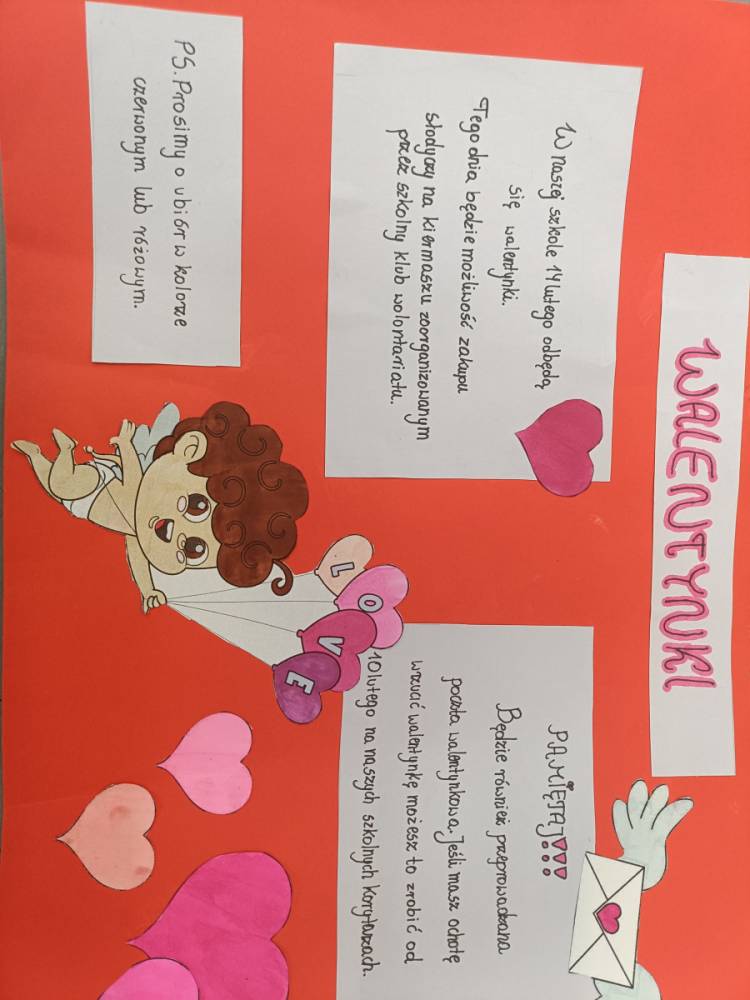 WALENTYNKI
W naszej szkole 14 lutego odbędą
się walentynki.
Tego dnia będzie możliwość zakupu
słodyczy na kiermaszu zoorganizowanym
przez szkolny klub wolontariatu.
PS. Prosimy o ubiór w kolorze
czerwonym lub różowym.
LOVE
PAMIĘTAJ!!!
Będzie również przeprowadzana
poczta walentynkowa. Jeśli masz ochotę
wrzucić walentynkę możesz to zrobić od
10 lutego na naszych szkolnych korytarzach.